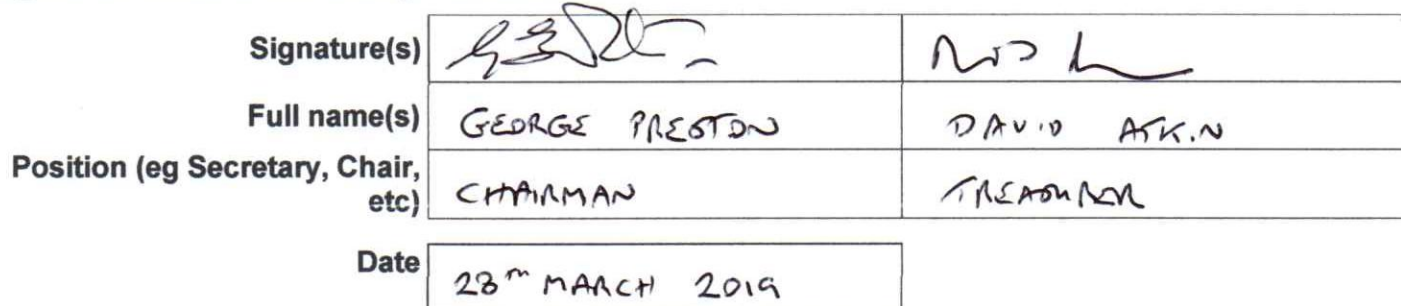 Signature(s)
Full name(s) GEORGE PRESTON DAVID ATKIN
Position (eg Secretary, Chair,
etc) CHAIRMAN TREASURER
Date 28th MARCH 2019